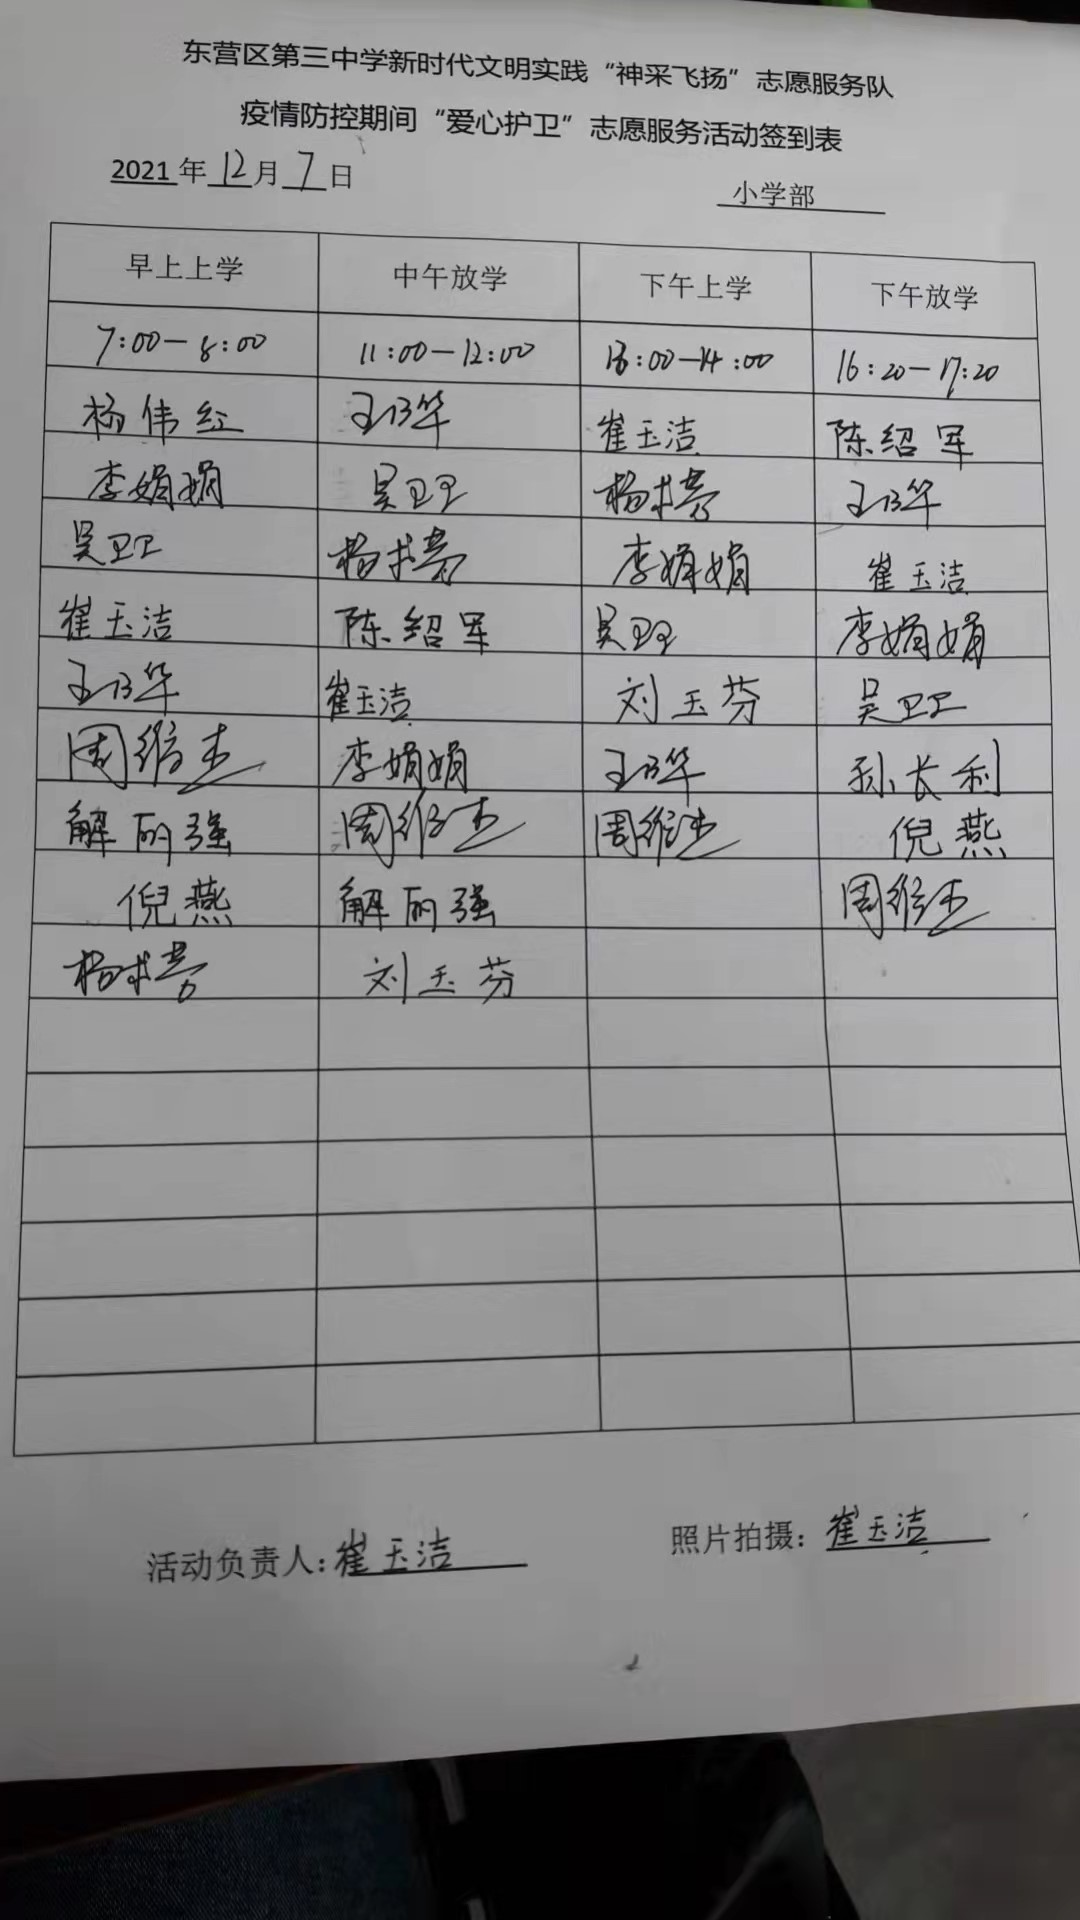 东营区第三中学新时代文明实践“神采飞扬”志愿服务队
疫情防控期间“爱心护卫”志愿服务活动签到表
2021年12月7日 小学部
早上上学 中午放学 下午上学 下午放学
7:00-8:00 11:00-12:00 13:00-14:00 16:20-17:20
杨伟红 王乃华 崔玉洁 陈绍军
李娟娟 吴卫卫 杨求亮 王乃华
吴卫卫 杨求亮 李娟娟 崔玉洁
崔玉洁 陈绍军 吴卫卫 李娟娟
王乃华 崔玉洁 刘玉芬 吴卫卫
周维杰 李娟娟 王乃华 孙长利
解丽强 周维杰 周维杰 倪燕
倪燕 解丽强 周维杰
杨求亮 刘玉芬
活动负责人:崔玉洁 照片拍摄:崔玉洁